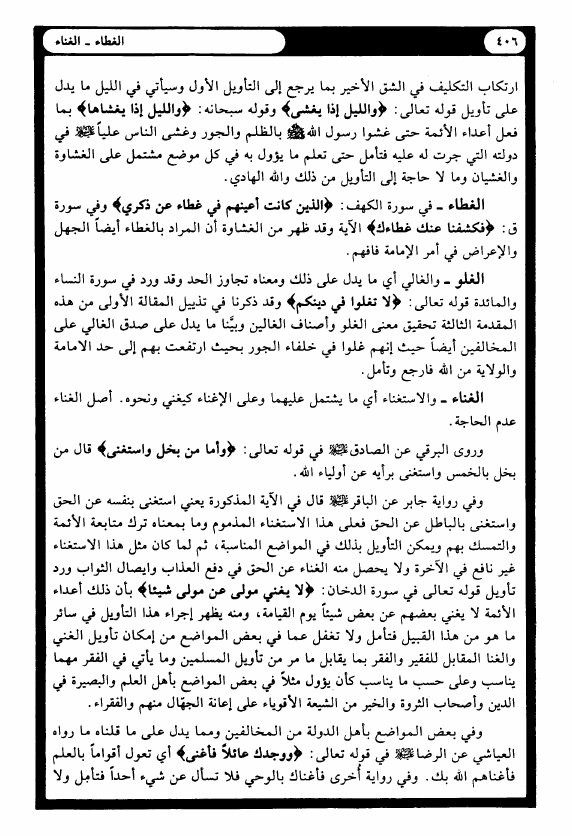 ٤٠٦
الغطاء ـ الغناء
ارتكاب التكليف في الشق الأخير بما يرجع إلى التأويل الأول وسيأتي في الليل ما يدل
على تأويل قوله تعالى: ﴿والليل إذا يغشى﴾ وقوله سبحانه: ﴿والليل إذا يغشاها﴾ بما
فعل أعداء الأئمة حتى غشوا رسول الله ﷺ بالظلم والجور وغشى الناس علياً في
دولته التي جرت له عليه فتأمل حتى تعلم ما يؤول به في كل موضع مشتمل على الغشاوة
والغشيان وما لا حاجة إلى التأويل من ذلك والله الهادي.
الغطاء ـ في سورة الكهف: ﴿الذين كانت أعينهم في غطاء عن ذكري﴾ وفي سورة
ق: ﴿فكشفنا عنك غطاءك﴾ الآية وقد ظهر من الغشاوة أن المراد بالغطاء أيضاً الجهل
والإعراض في أمر الإمامة فافهم.
الغلو ـ والغالي أي ما يدل على ذلك ومعناه تجاوز الحد وقد ورد في سورة النساء
والمائدة قوله تعالى: ﴿لا تغلوا في دينكم﴾ وقد ذكرنا في تذييل المقالة الأولى من هذه
المقدمة الثالثة تحقيق معنى الغلو وأصناف الغالين وبيَّنا ما يدل على صدق الغالي على
المخالفين أيضاً حيث إنهم غلوا في خلفاء الجور بحيث ارتفعت بهم إلى حد الامامة
والولاية من الله فارجع وتأمل.
الغناء ـ والاستغناء أي ما يشتمل عليهما وعلى الإغناء كيغني ونحوه. أصل الغناء
عدم الحاجة.
وروى البرقي عن الصادق في قوله تعالى: ﴿وأما من بخل واستغنى﴾ قال من
بخل بالخمس واستغنى برأيه عن أولياء الله.
وفي رواية جابر عن الباقر قال في الآية المذكورة يعني استغنى بنفسه عن الحق
واستغنى بالباطل عن الحق فعلى هذا الاستغناء المذموم وما بمعناه ترك متابعة الأئمة
والتمسك بهم ويمكن التأويل بذلك في المواضع المناسبة، ثم لما كان مثل هذا الاستغناء
غير نافع في الآخرة ولا يحصل منه الغناء عن الحق في دفع العذاب وايصال الثواب ورد
تأويل قوله تعالى في سورة الدخان: ﴿لا يغني مولى عن مولى شيئا﴾ بأن ذلك أعداء
الأئمة لا يغني بعضهم عن بعض شيئاً يوم القيامة، ومنه يظهر إجراء هذا التأويل في سائر
ما هو من هذا القبيل فتأمل ولا تغفل عما في بعض المواضع من إمكان تأويل الغني
والغنا المقابل للفقير والفقر بما يقابل ما مر من تأويل المسلمين وما يأتي في الفقر مهما
يناسب وعلى حسب ما يناسب كأن يؤول مثلاً في بعض المواضع بأهل العلم والبصيرة في
الدين وأصحاب الثروة والخير من الشيعة الأقوياء على إعانة الجهّال منهم والفقراء.
وفي بعض المواضع بأهل الدولة من المخالفين ومما يدل على ما قلناه ما رواه
العياشي عن الرضا في قوله تعالى: ﴿ووجدك عائلاً فأغنى﴾ أي تعول أقواماً بالعلم
فأغناهم الله بك. وفي رواية أُخرى فأغناك بالوحي فلا تسأل عن شيء أحداً فتأمل ولا